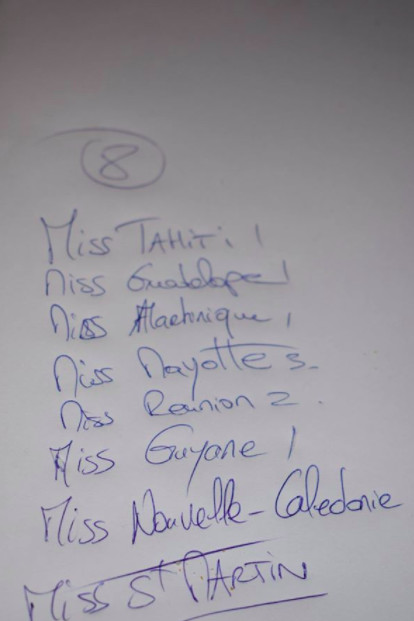 8
Miss TAHiTi 1
Miss Guadeloupe 1
Miss Martinique 1
Miss Mayotte 3.
Miss Reunion 2.
Miss Guyane 1
Miss Nouvelle-Caledonie
Miss St MARTIN